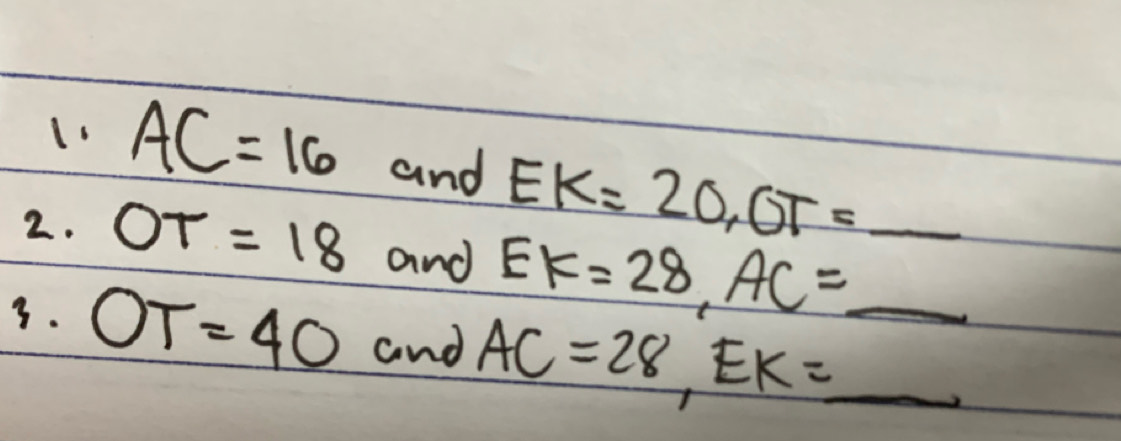 1. AC = 16 and EK = 20, OT = ___
2. OT = 18 and EK = 28, AC = ___
3. OT = 40 and AC = 28, EK = ___